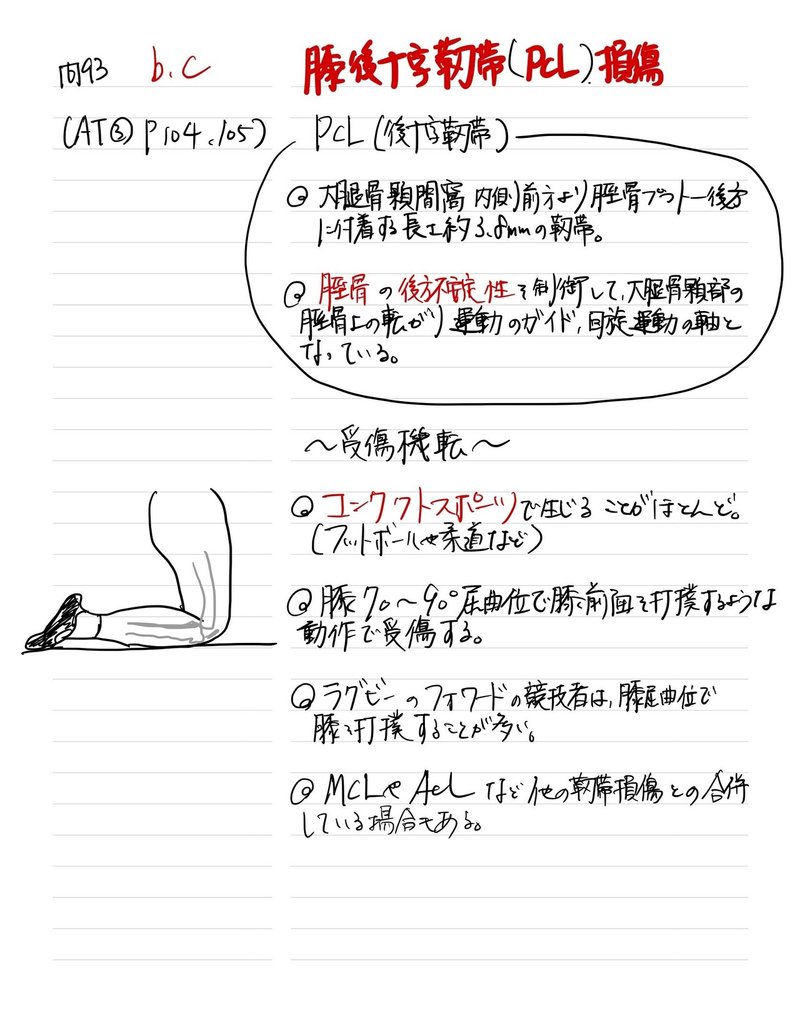 問93 b.c
膝後十字靭帯(PCL)損傷
(AT③ P104.105)
PCL(後十字靭帯)
大腿骨顆間窩 内側前方より脛骨プラトー後方
に付着する長さ約3.8mmの靭帯。
脛骨の後方不安定性を制御して、大腿骨顆部の
脛骨上の転がり運動のガイド,回旋運動の軸と
なっている。
〜受傷機転〜
コンタクトスポーツで生じることがほとんど。
(フットボールや柔道など)
膝70〜90°屈曲位で膝前面を打撲するような
動作で受傷する。
ラグビーのフォワードの競技者は,膝屈曲位で
膝を打撲することが多い。
MCLやACLなど他の靭帯損傷との合併
している場合もある。